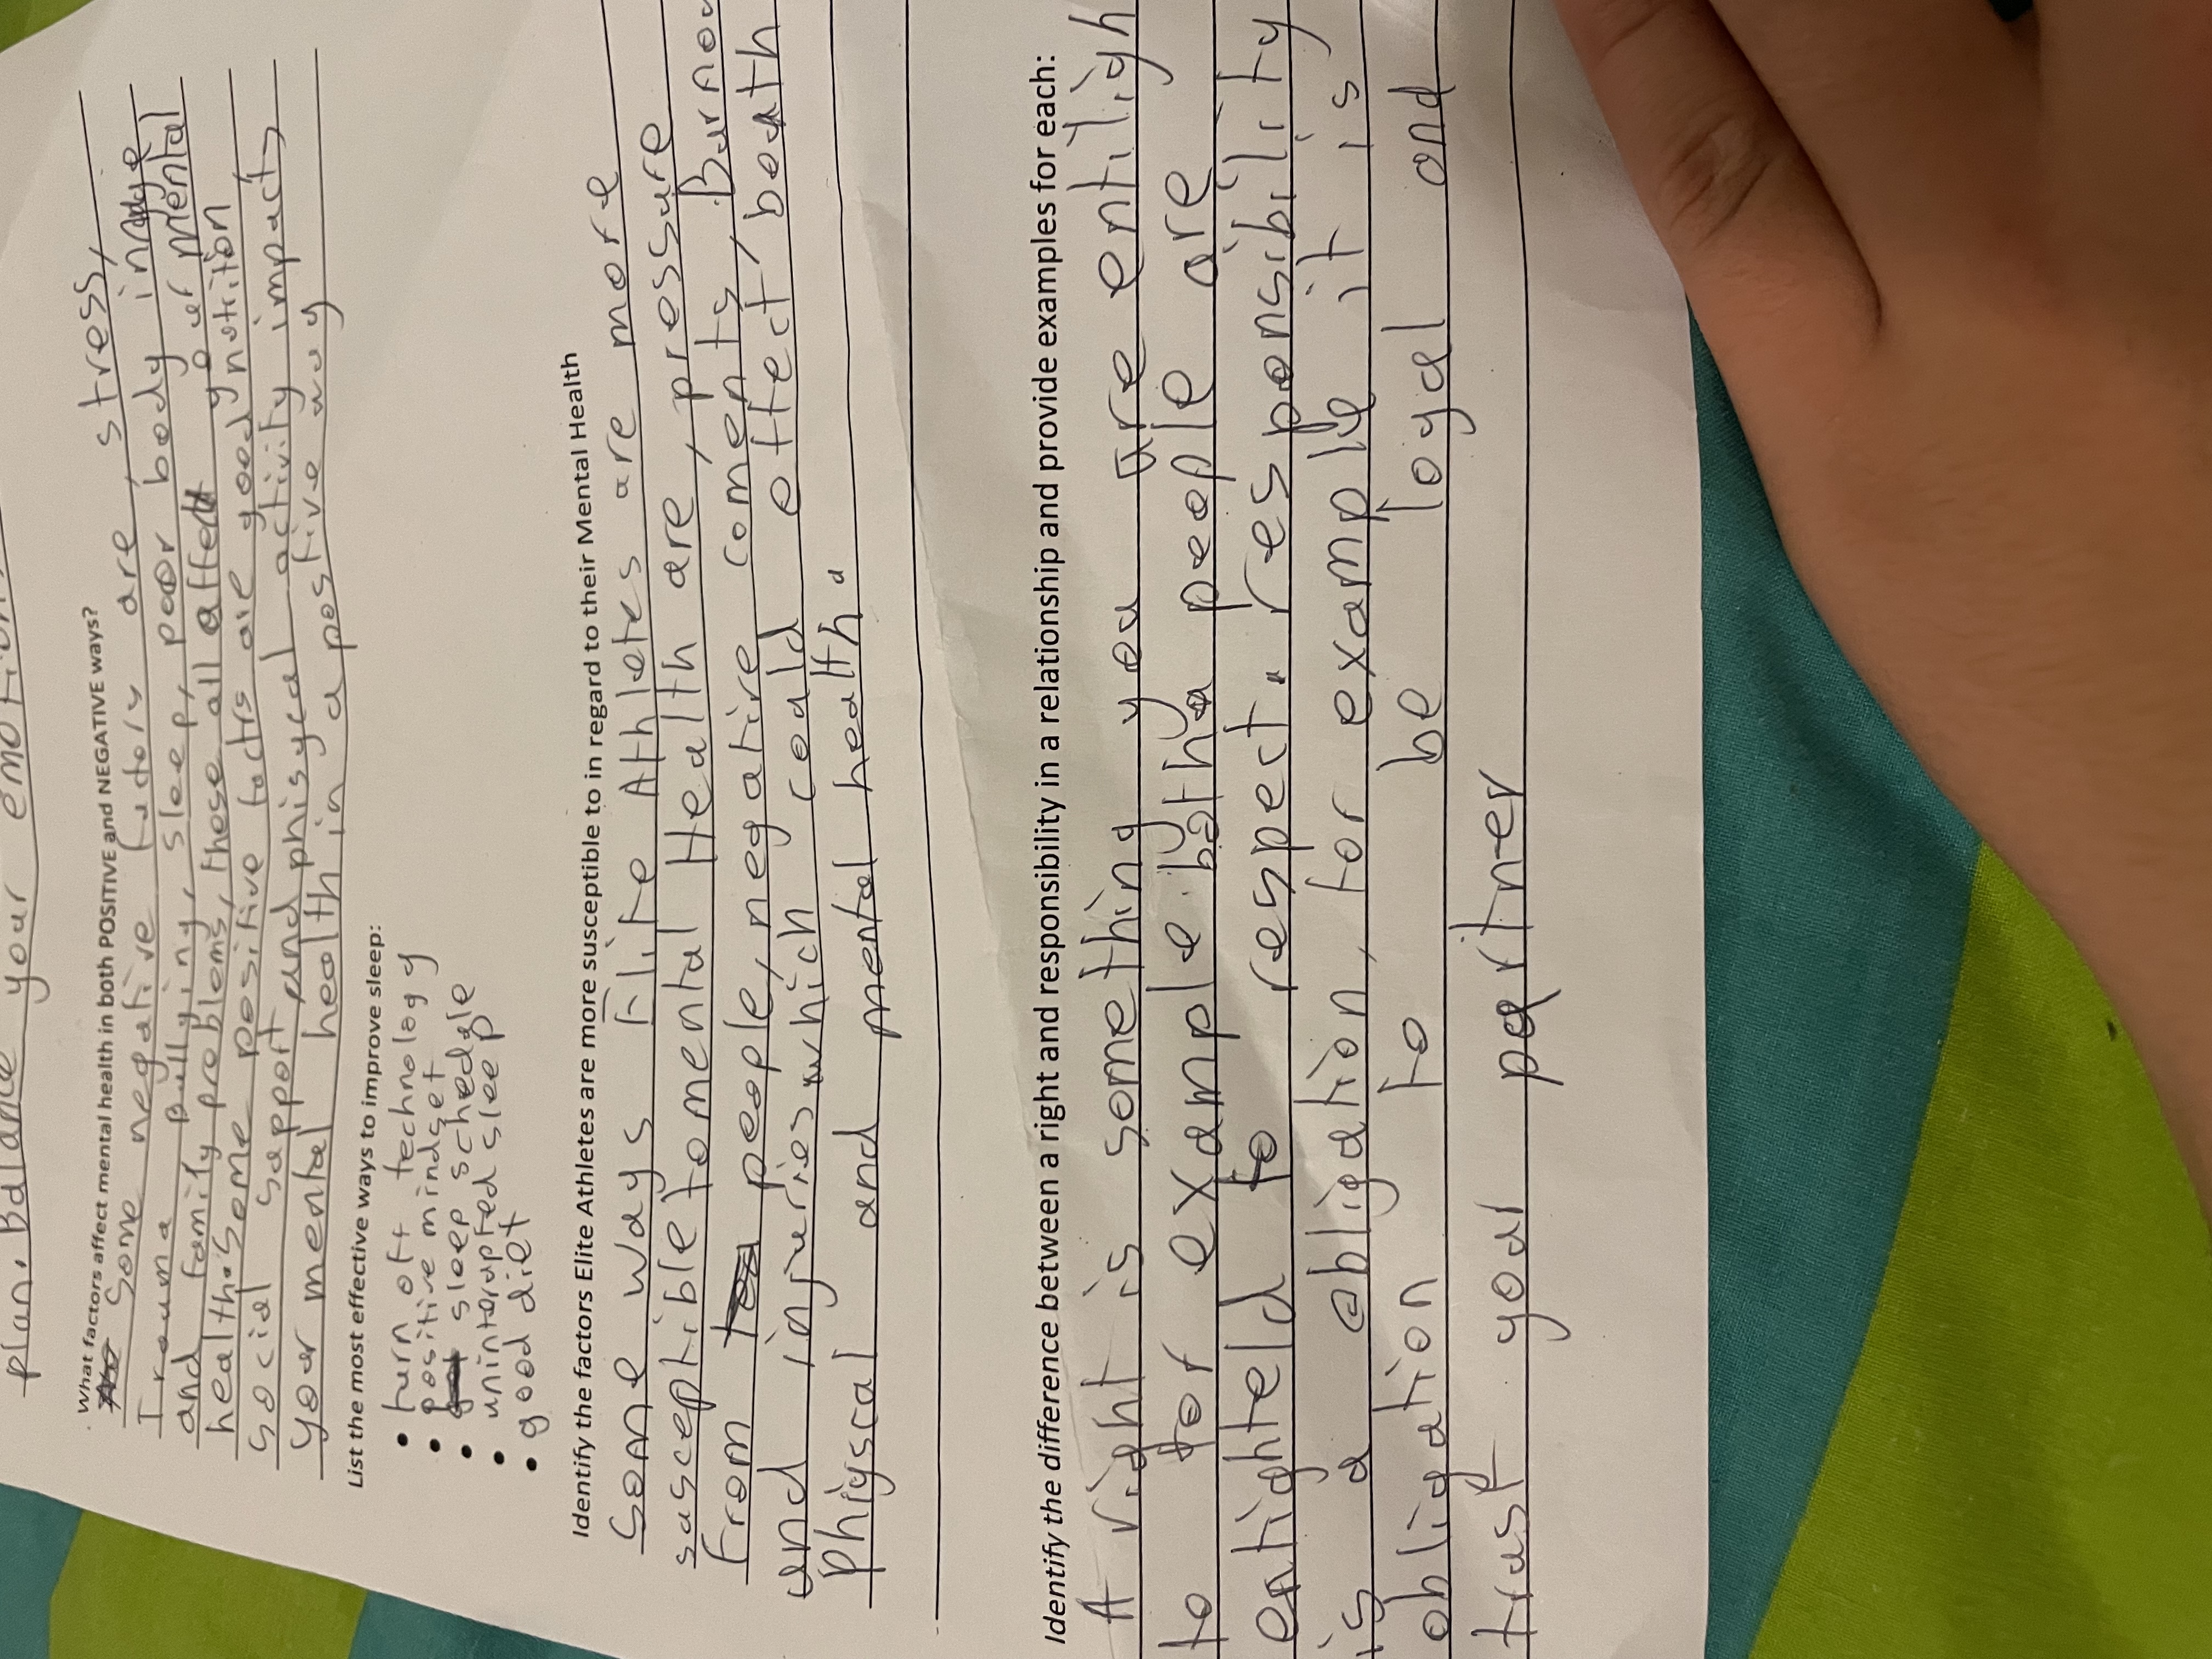 plan. Balance your emotion
What factors affect mental health in both POSITIVE and NEGATIVE ways?
Some negative factors are, stress,
Trauma, bullying, sleep, poor body image
and family problems, these all affect your mental
health. Some positive facts are good nutrition
social support and phisycal activity impacts
your mental health in a postive way
List the most effective ways to improve sleep:
• turn off technology
• positive mindset
• sleep schedule
• uninterupted sleep
• good diet
Identify the factors Elite Athletes are more susceptible to in regard to their Mental Health
Some ways Elite Athletes are more
susceptible to mental Health are, pressure
from people, negative coments, Burnou
and injuries which could effect, boath
Phiyscal and mental health.
Identify the difference between a right and responsibility in a relationship and provide examples for each:
A right is something you are entiligh
to for example both people are
entighteld to respect. responsibility
is a obligation, for example it is
obligation to be loyal and
trust your partner